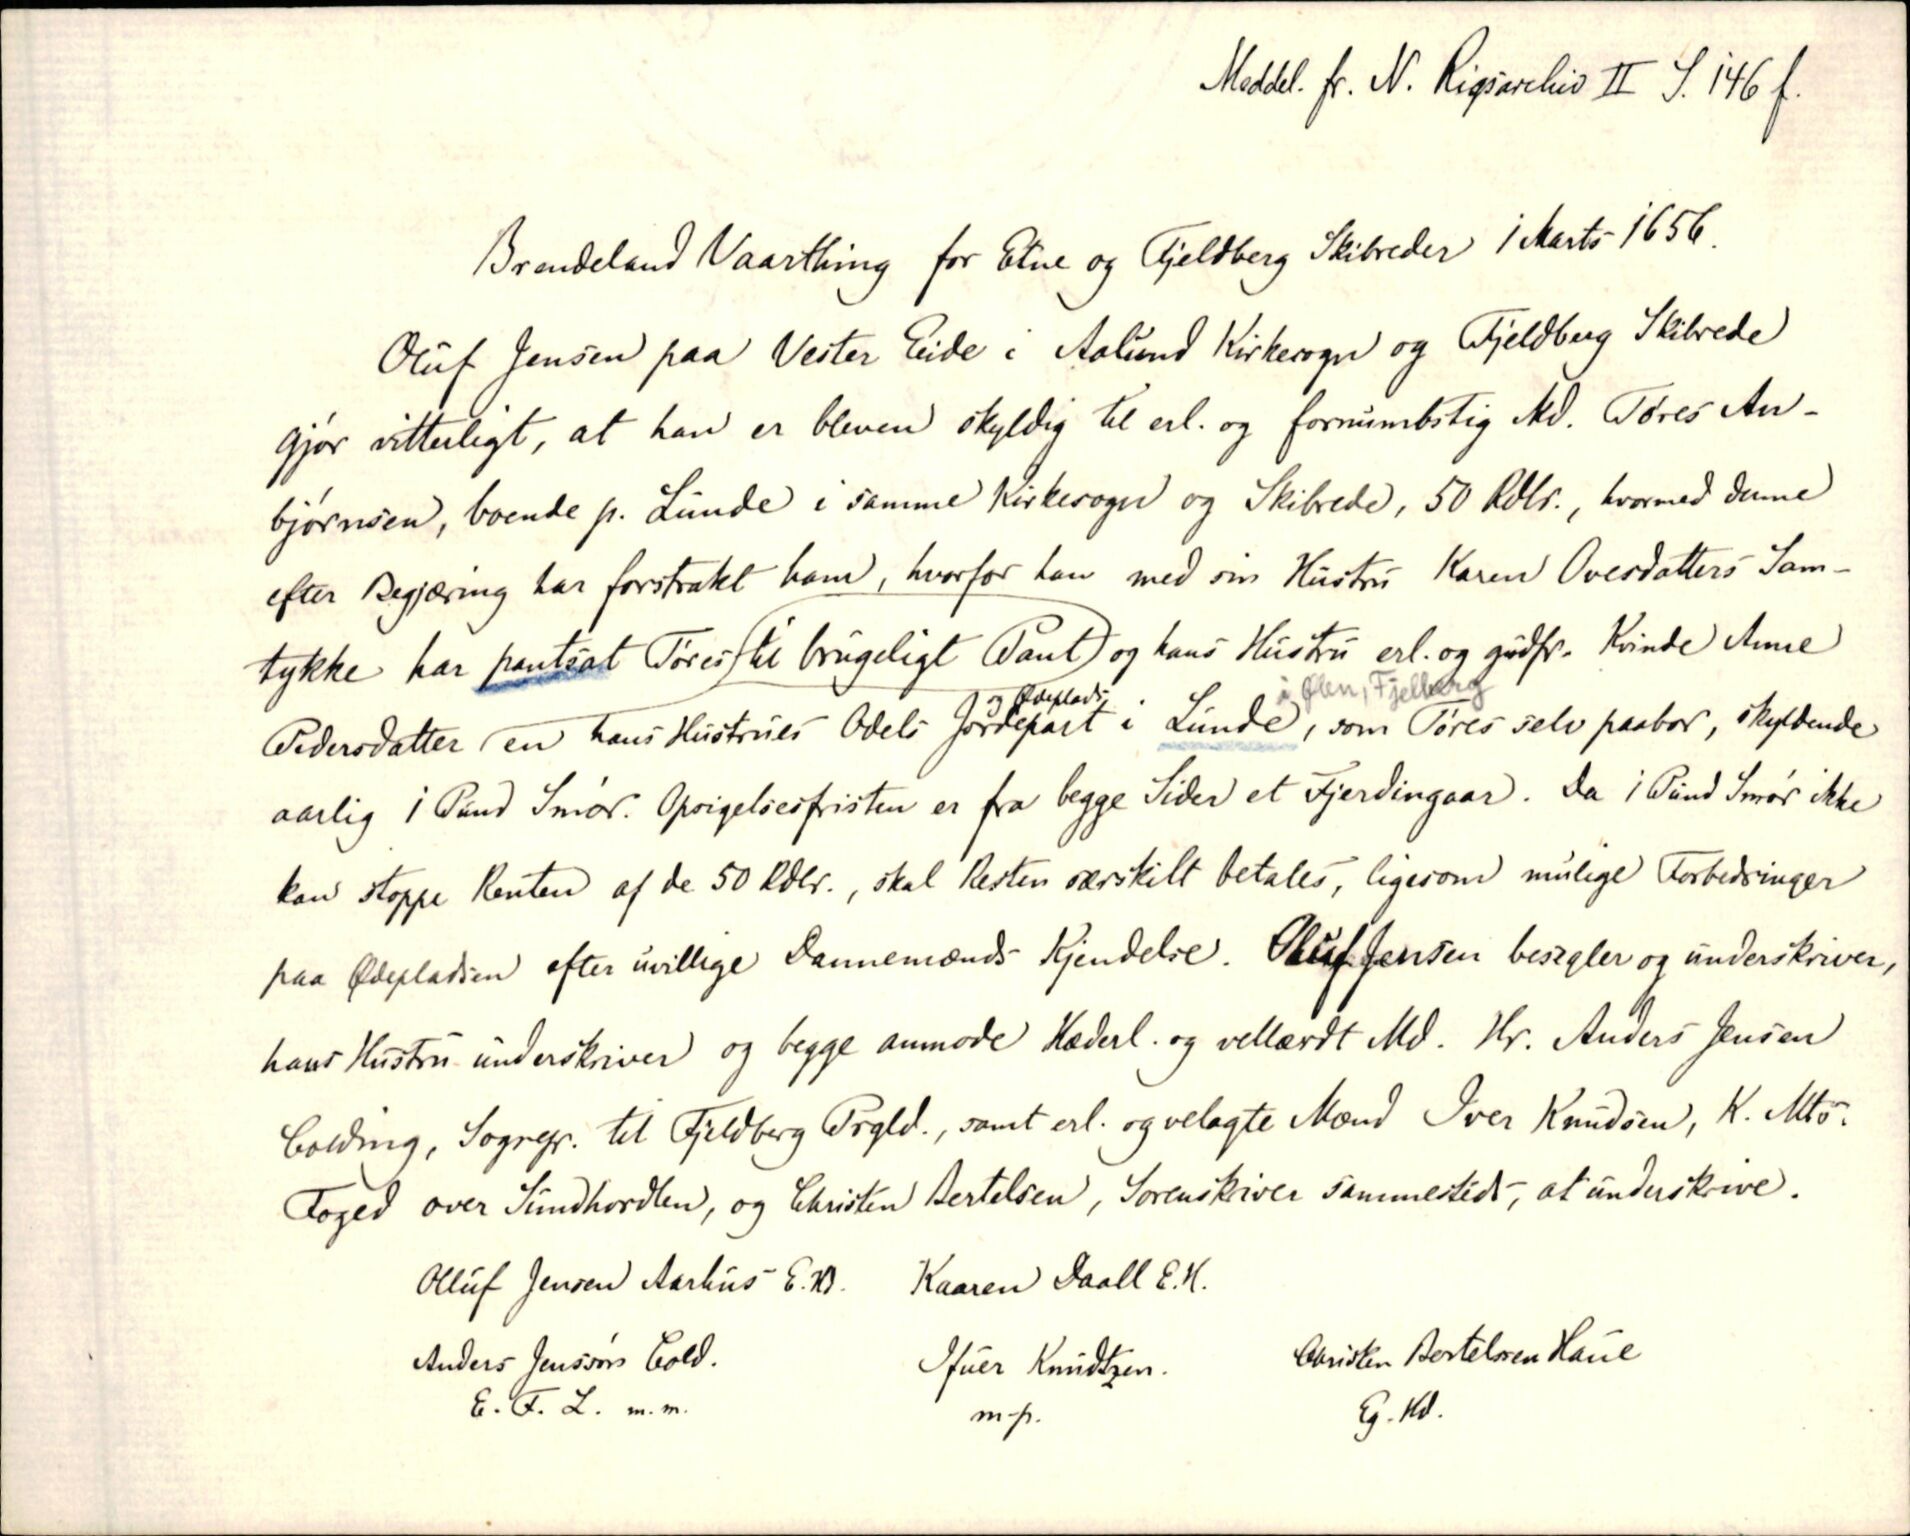 Meddel. fr. N. Rigsarchiv II S. 146 f.
Brendeland Vaarthing for Etne og Fjeldberg Skibreder 1 Marts 1656.
Oluf Jensen paa Vester Eide i Aalund Kirkesogn og Fjeldberg Skibrede
gjør vitterligt, at han er bleven skyldig til erl. og fornumbstig Md. Tøres An-
bjørnsen, boende p. Lunde i samme Kirkesogn og Skibrede, 50 Rdlr., hvormed denne
efter Begjæring har forstrakt ham, hvorfor han med sin Hustru Karen Ovesdatters Sam-
tykke har pantsat Tøres (til brugeligt Pant) og hans Hustru erl. og gudfr. Kvinde Anne
og Ødeplads i Ølen, Fjelberg
Pedersdatter en hans Hustrues Odels Jordepart i Lunde, som Tøres selv paabor, skyldende
aarlig 1 Pund Smør. Opsigelsesfristen er fra begge Sider et Fjerdingaar. Da 1 Pund Smør ikke
kan stoppe Renten af de 50 Rdlr., skal Resten særskilt betales, ligesom mulige Forbedringer
paa Ødepladsen efter uvillige Dannemænds Kjendelse. Oluf Jensen besegler og underskriver,
hans Hustru underskriver og begge anmode Hæderl. og vellærdt Md. Hr. Anders Jensen
Colding, Sognepr. til Fjeldberg Prgld., samt erl. og velagte Mænd Iver Knudsen, K. Mts.
Foged over Sundhordlen, og Christen Bertelsen, Sorenskriver sammesteds, at underskrive.
Olluf Jensen Aarhus E. HD. Kaaren Daall E. H.
Anders Jenssøn Cold. Ifuer Knudtzen. Christen Bertelssen Haue
E. F. L. m. m. m-p. Eg. Hd.